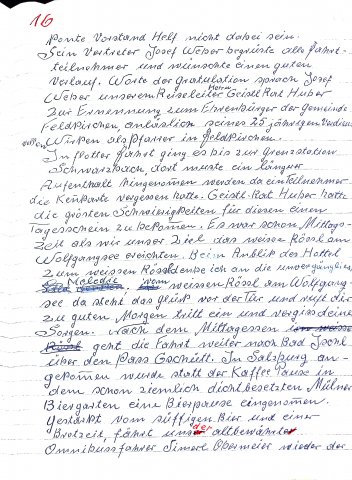 16
konnte Vorstand Helf nicht dabei sein.
Sein Vertreter Josef Weber begrüste alle Fahrt-
teilnehmer und wünschte einen guten
Verlauf. Worte der Gratulation sprach Josef
Weber unserem Reiseleiter Herrn Geistl. Rat Huber
zur Ernennung zum Ehrenbürger der Gemeinde
Feldkirchen, anläslich seines 25 jährigen
Wirken als Pfarrer in Feldkirchen.
In flotter Fahrt ging es bis zur Grenzstation
Schwarzbach, dort muste ein längrer
Aufenthalt hingenommen werden da ein Teilnehmer
die Kennkarte vergessen hatte. Geistl. Rat Huber hatte
die grösten Schwierigkeiten für diesen einen
Tagesschein zu bekommen. Es war schon Mittags-
zeit als wir unser Ziel das weisse Rössl am
Wolfgangsee ereichten. Beim Anblik des Hottel
zum weissen Rössl denke ich an die unvergängliche
Melodie, vom weissen Rössl am Wolfgang-
see da steht das Glück vor der Tür und ruft dir
zu guten Morgen tritt ein und vergiss deine
Sorgen. Nach dem Mittagessen im weissen
Rössl geht die Fahrt weiter nach Bad Ischl
über den Pass Gschütt. In Salzburg an-
gekommen wurde statt der Kaffee Pause in
dem schon ziemlich dichtbesetzten Mülner
Biergarten eine Bierpause eingenommen.
Gestärkt vom süffigen Bier und einer
Brotzeit, fährt unser der altbewährter
Omnibusfahrer Simert Obermeier wieder der